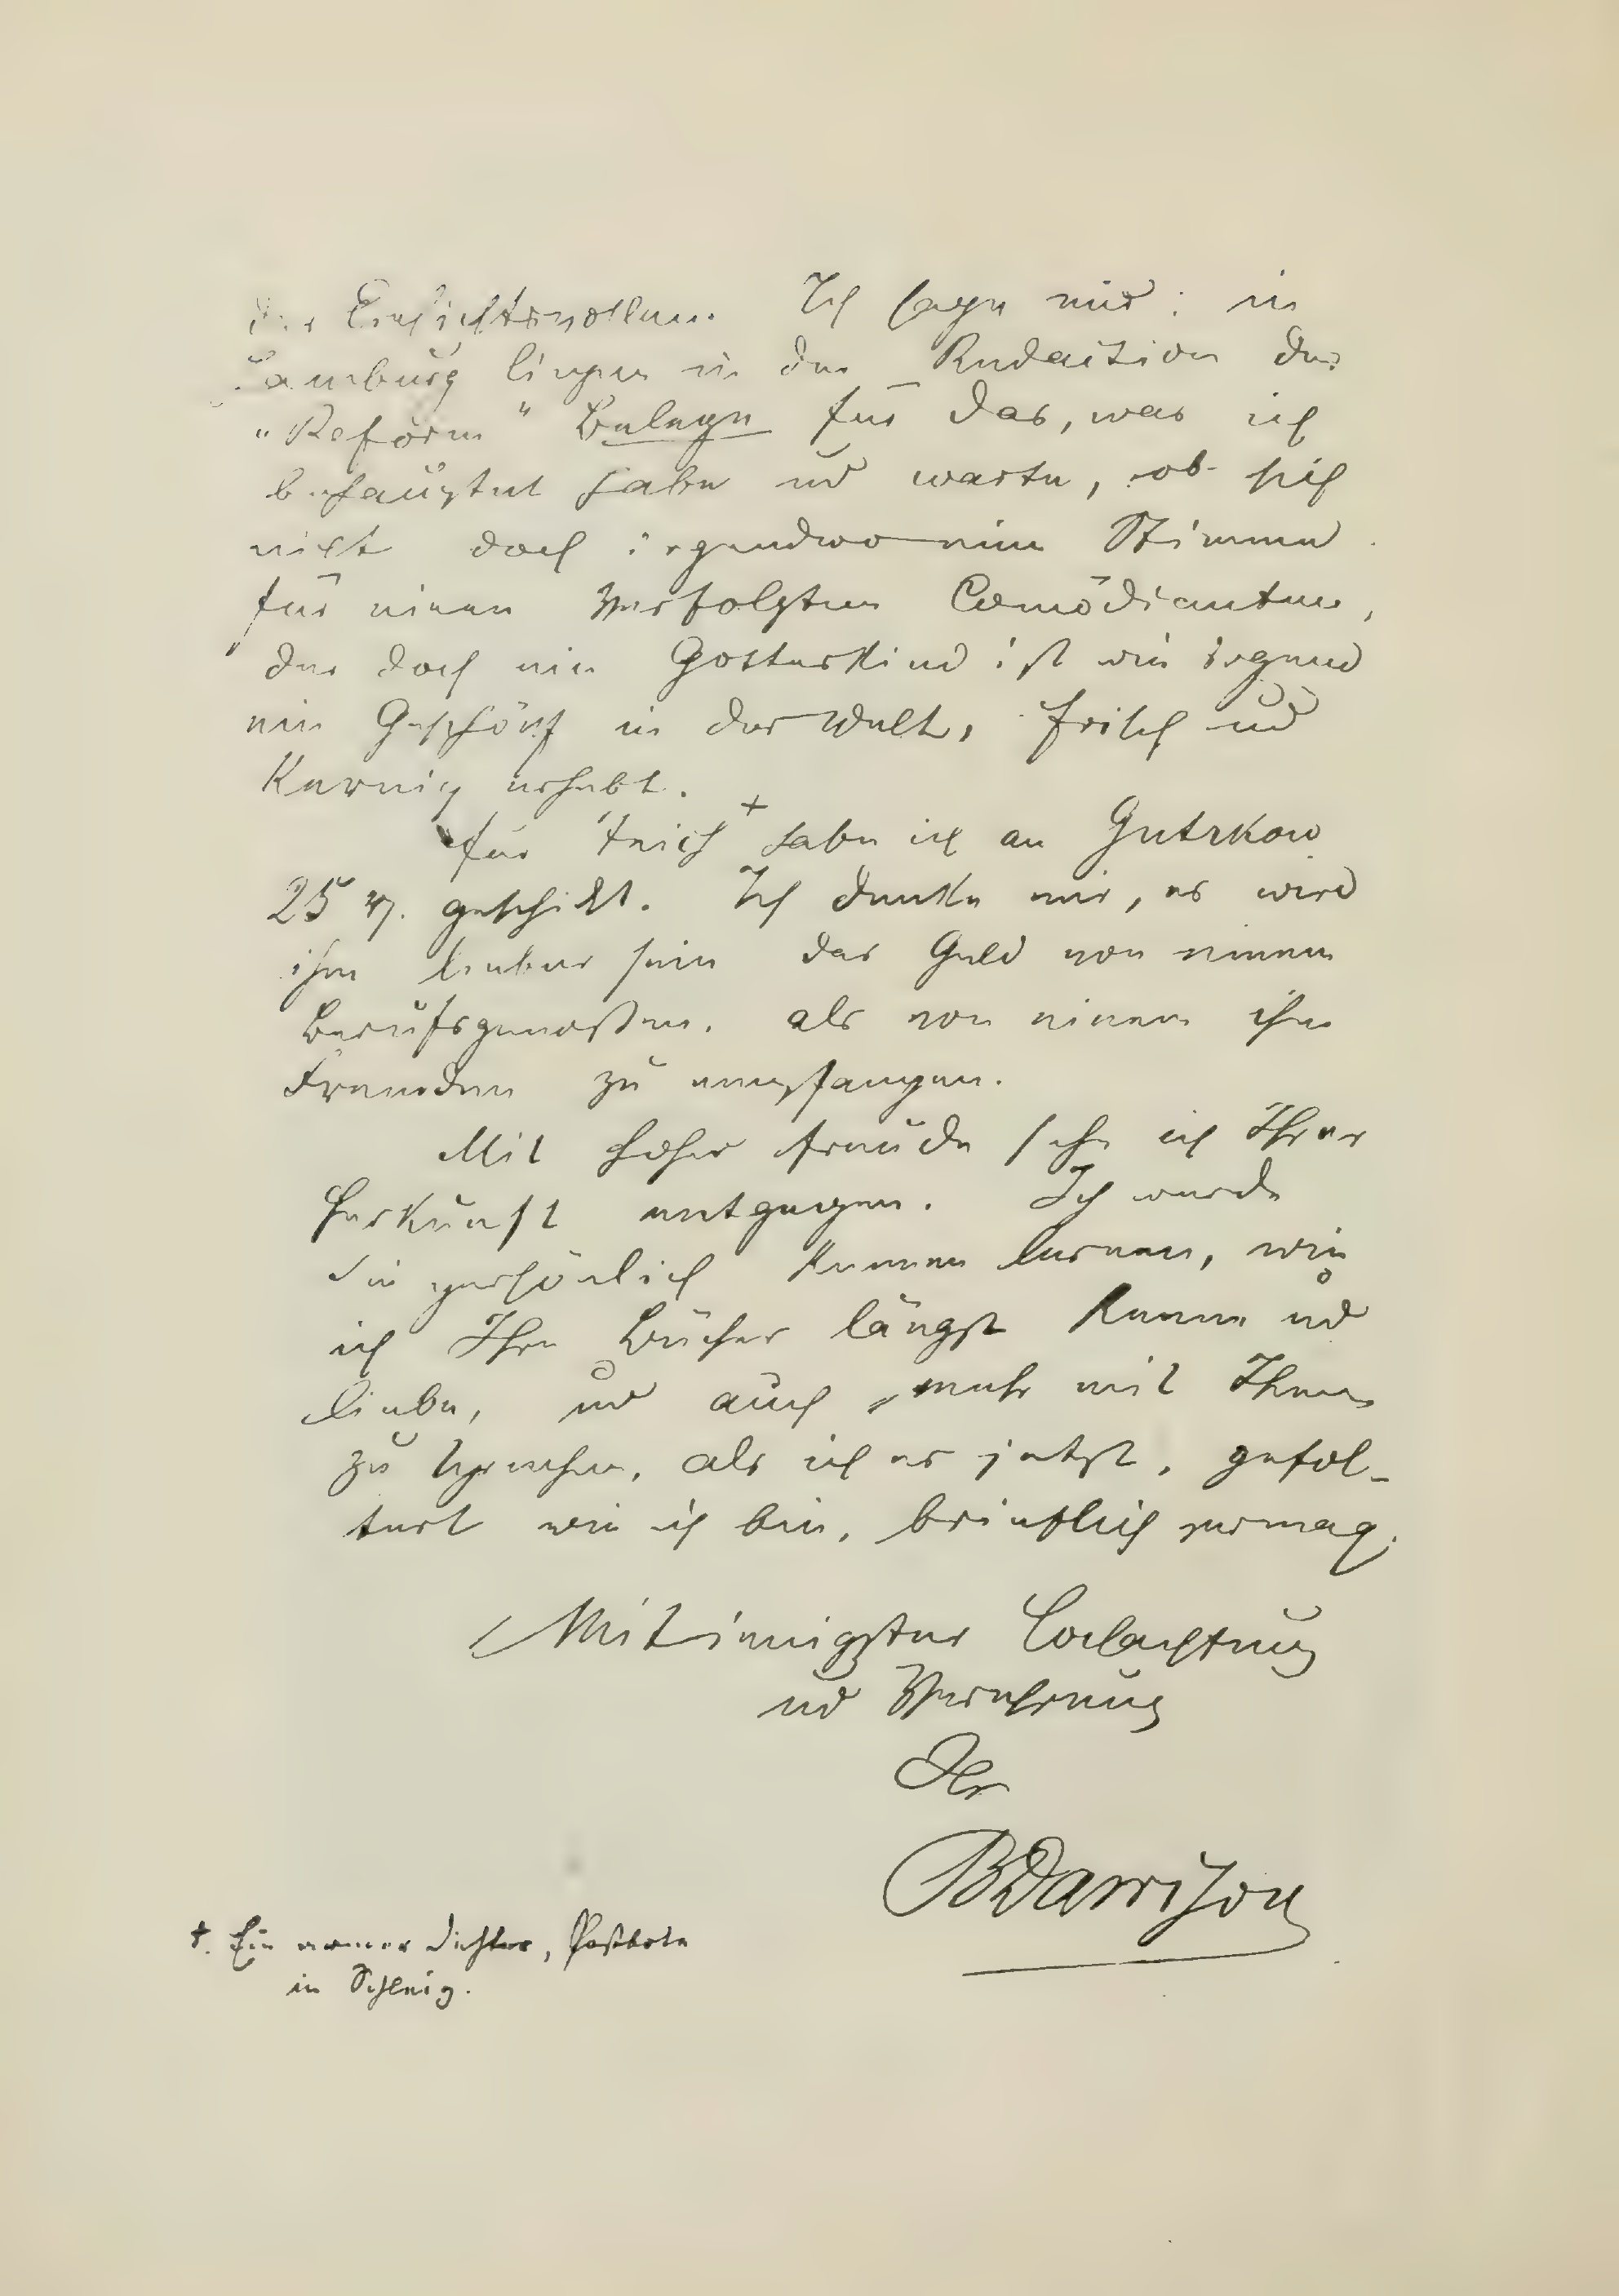 der Einsichtsvollen. Ich sage nur: in
Hamburg liegen in der Redaction der
"Reform" Belege für das, was ich
behauptet habe und warte, ob sich
nicht doch irgendwo eine Stimme
für einen verfolgten Comödianten,
der doch ein Gotteskind ist wie irgend
ein Geschöpf in der Welt, frisch und
kernig erhebt.
Für + habe ich an Gutzkow
25 geschickt. Ich denke mir, es wird
ihm lieber sein das Geld von einem
Berufsgenoßen, als von einem ihm
Fremden zu empfangen.
Mit hoher Freude sehe ich Ihrer
Herkunft entgegen. Ich werde
Sie persönlich kennen lernen, wie
ich Ihre Bücher längst kenne und
liebe, und auch mehr mit Ihnen
zu sprechen, als ich es jetzt, gefol-
tert wie ich bin, brieflich vermag.
Mit innigster Hochachtung
und Verehrung
Ihr
BDawison
+. Ein armer Dichter, Postbote
in Schleiz.